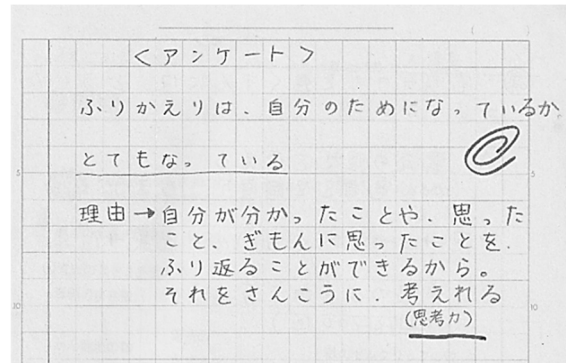 ＜アンケート＞
ふりかえりは、自分のためになっているか
とてもなっている
理由→自分が分かったことや、思った
こと、ぎもんに思ったことを、
ふり返ることができるから。
それをさんこうに、考えれる
(思考力)
5
5
10
10